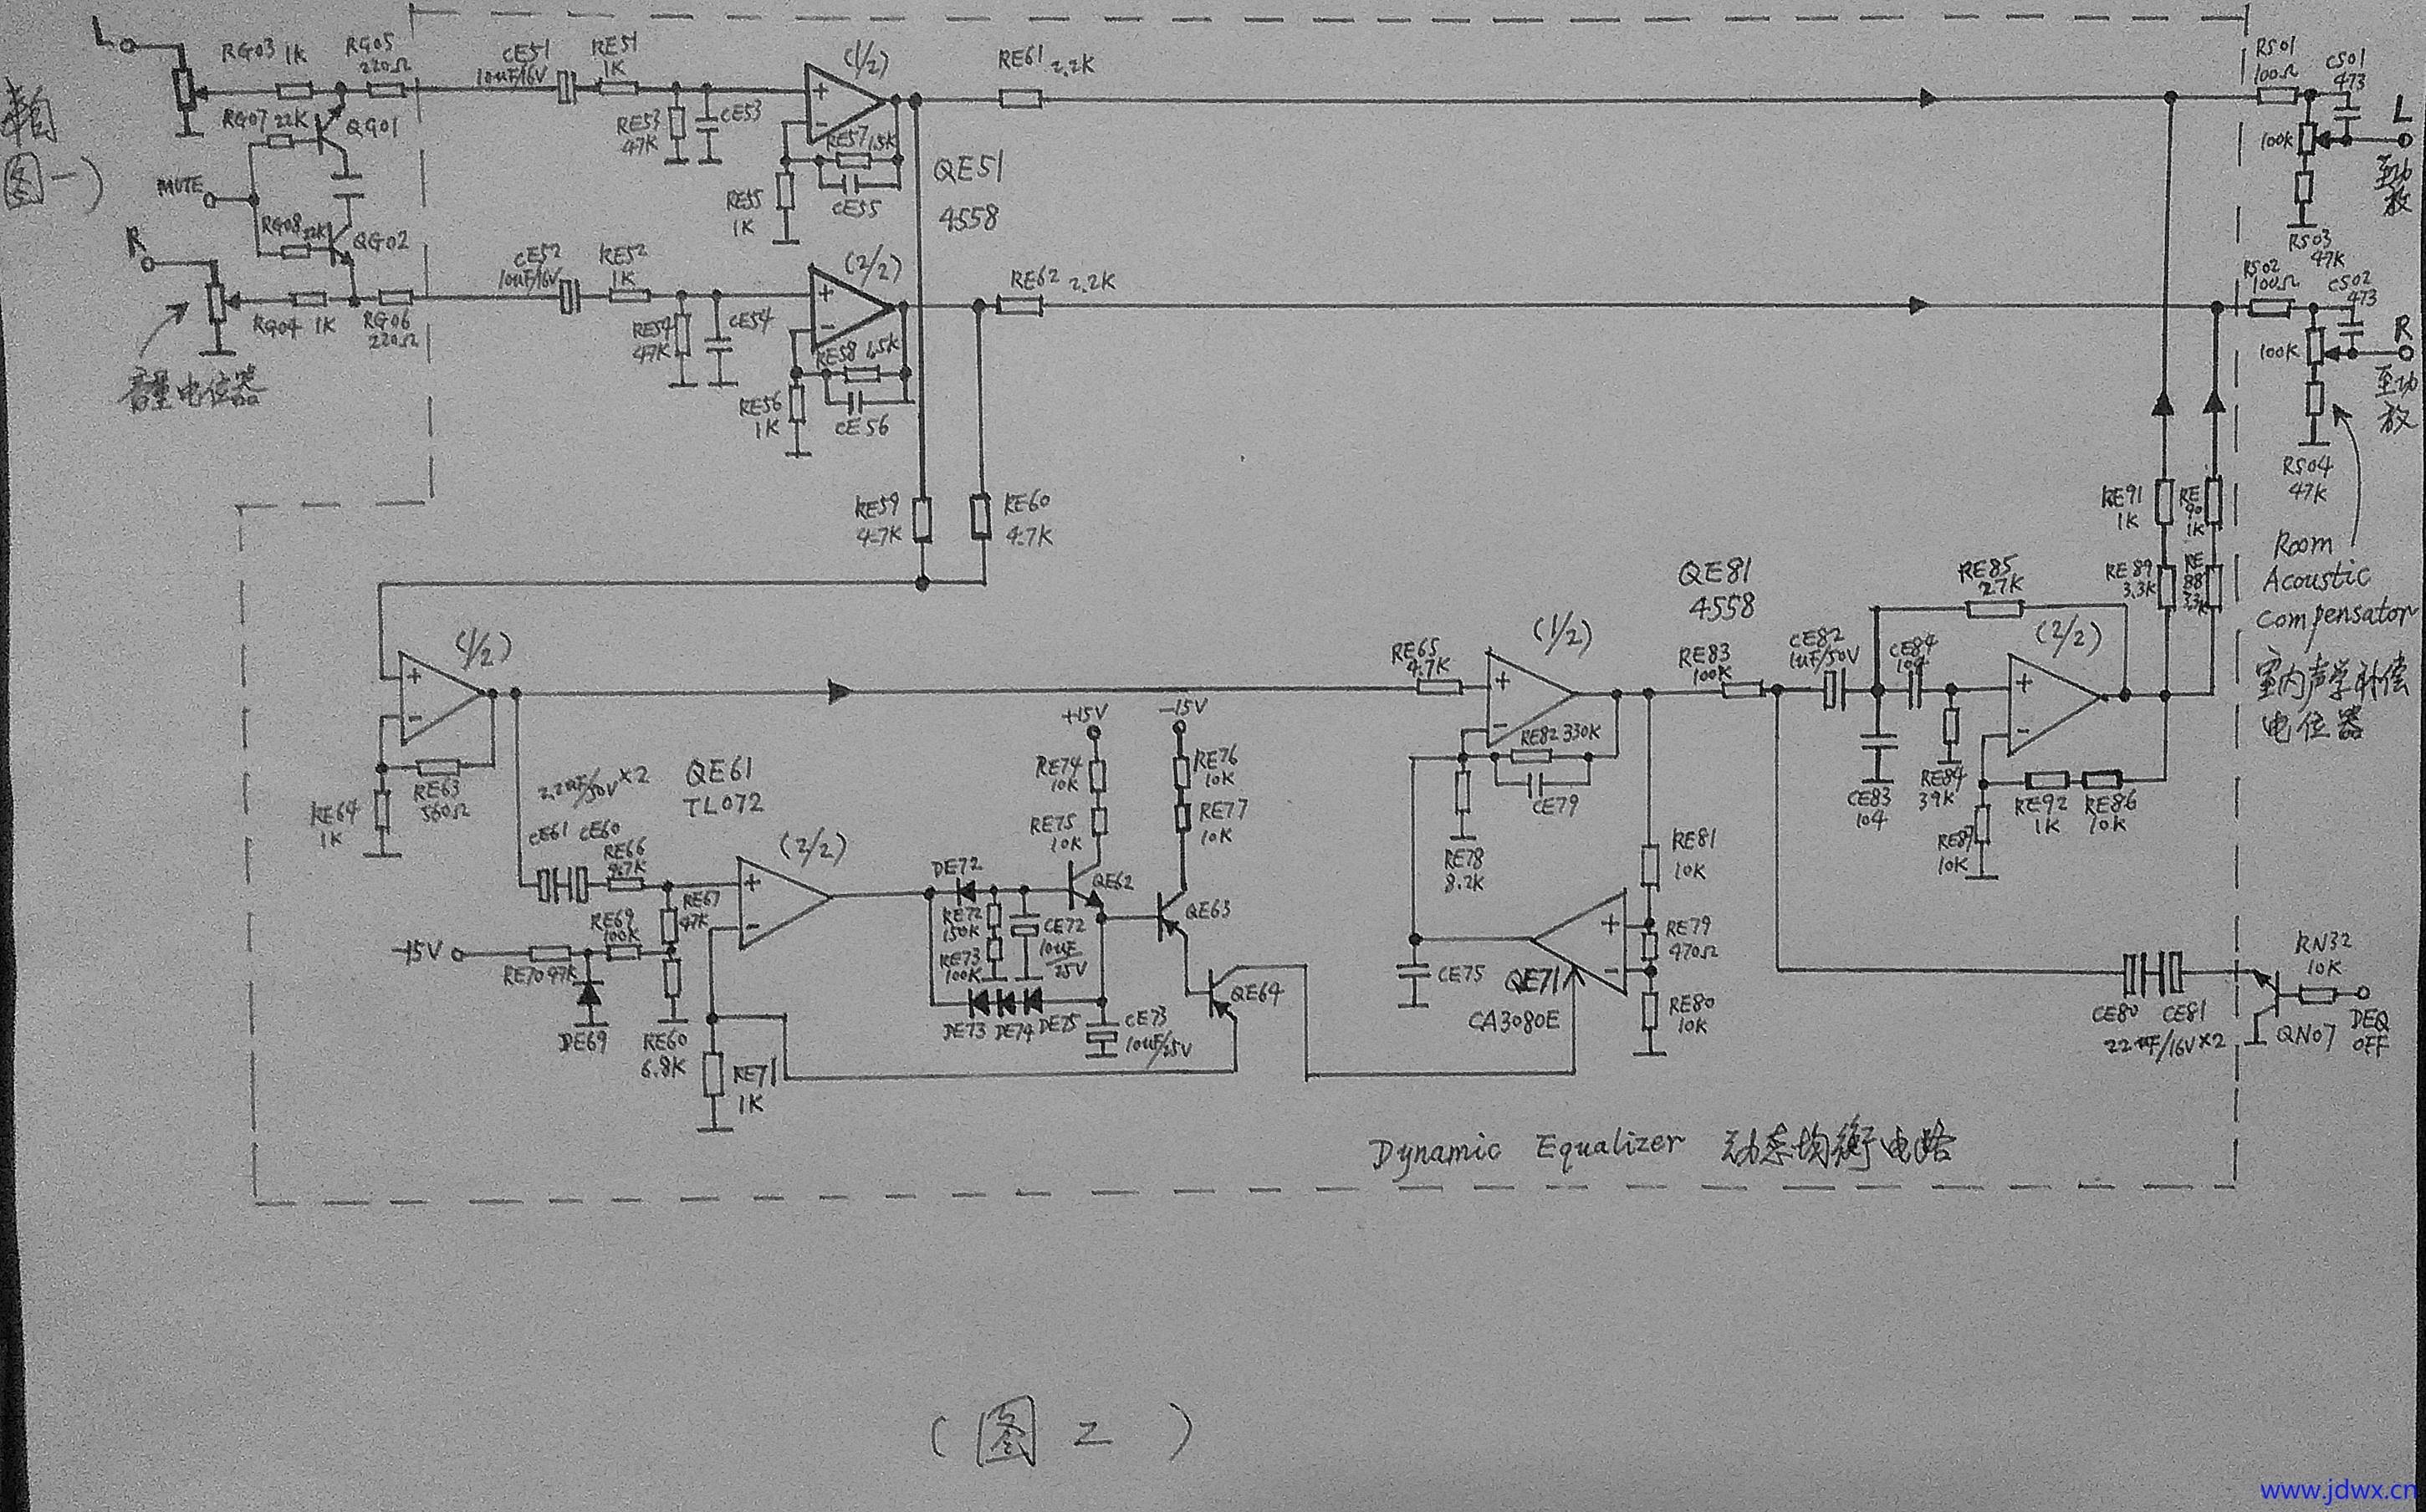 L
RG03 1K
RG05
220Ω
CE51
10uF/16V
RE51
1K
(1/2)
RE61 2.2K
RS01
100Ω
CS01
473
RG07 22K
QG01
RE53
47K
CE53
RE57 1.5K
QE51
4558
100K
L
至功
放
图一)
MUTE
RE55
1K
CE55
RG08 22K
QG02
R
CE52
10uF/16V
RE52
1K
(2/2)
RE62 2.2K
RS03
47K
RS02
100Ω
CS02
473
RG04 1K
RG06
220Ω
RE54
47K
CE54
RE58 1.5K
100K
R
至功
放
音量电位器
RE56
1K
CE56
RS04
47K
RE59
4.7K
RE60
4.7K
RE91
1K
RE
90
1K
Room
Acoustic
Compensator
室内声学补偿
电位器
QE81
4558
RE85
27K
RE89
3.3K
RE
88
3.3K
(1/2)
RE65
4.7K
(1/2)
RE83
100K
CE82
1uF/50V
CE84
104
(2/2)
RE64
1K
RE63
560Ω
2.2uF/50V×2
QE61
TL072
+15V
-15V
RE74
10K
RE76
10K
RE82 330K
CE79
CE83
104
RE84
39K
RE92
1K
RE86
10K
CE61 CE60
RE66
4.7K
(2/2)
RE75
10K
RE77
10K
RE78
8.2K
RE81
10K
RE87
10K
DE72
QE62
RE67
47K
RE69
100K
RE72
150K
RE73
100K
CE72
10uF
25V
QE63
RE79
470Ω
-15V
RE70 47K
DE69
RE60
6.8K
DE73 DE74 DE75
CE73
10uF/25V
QE64
CE75
QE71
CA3080E
RE80
10K
RN32
10K
CE80 CE81
22uF/16V×2
QN07
DEQ
OFF
RE71
1K
Dynamic Equalizer 动态均衡电路
(图2)
www.jdwx.cn